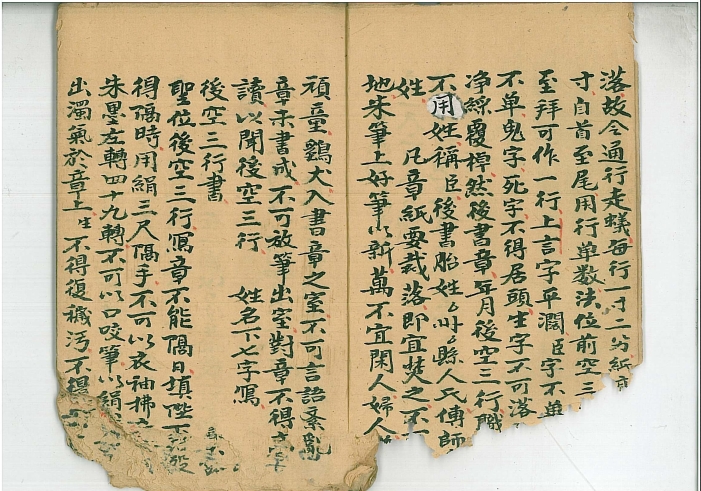 落故令通行走蟻每行一寸二分紙
寸自首至尾用行单数法位前空三
至拜可作一行上言字平濶臣字不
不单鬼字死字不得居頭生字不可落
净綵覆棹然後書章年月後空三行職
不用姓稱臣後書胎姓厶州厶縣人氏傳師
姓凡章紙要裁落即宜焚之不
地朱筆上好筆以新萬不宜閑人婦人
頑童鷄犬入書章之室不可言語紊亂
章未書成不可放筆出室對章不得
讀以聞後空三行姓名下七字寫
後空三行書
聖位後空三行寫章不能隔日填陛下
得隔時用絹三尺隔手不可以衣袖拂
朱墨左轉四十九轉不可以口咬筆以絹
出濁氣於章上生不得復穢污不得